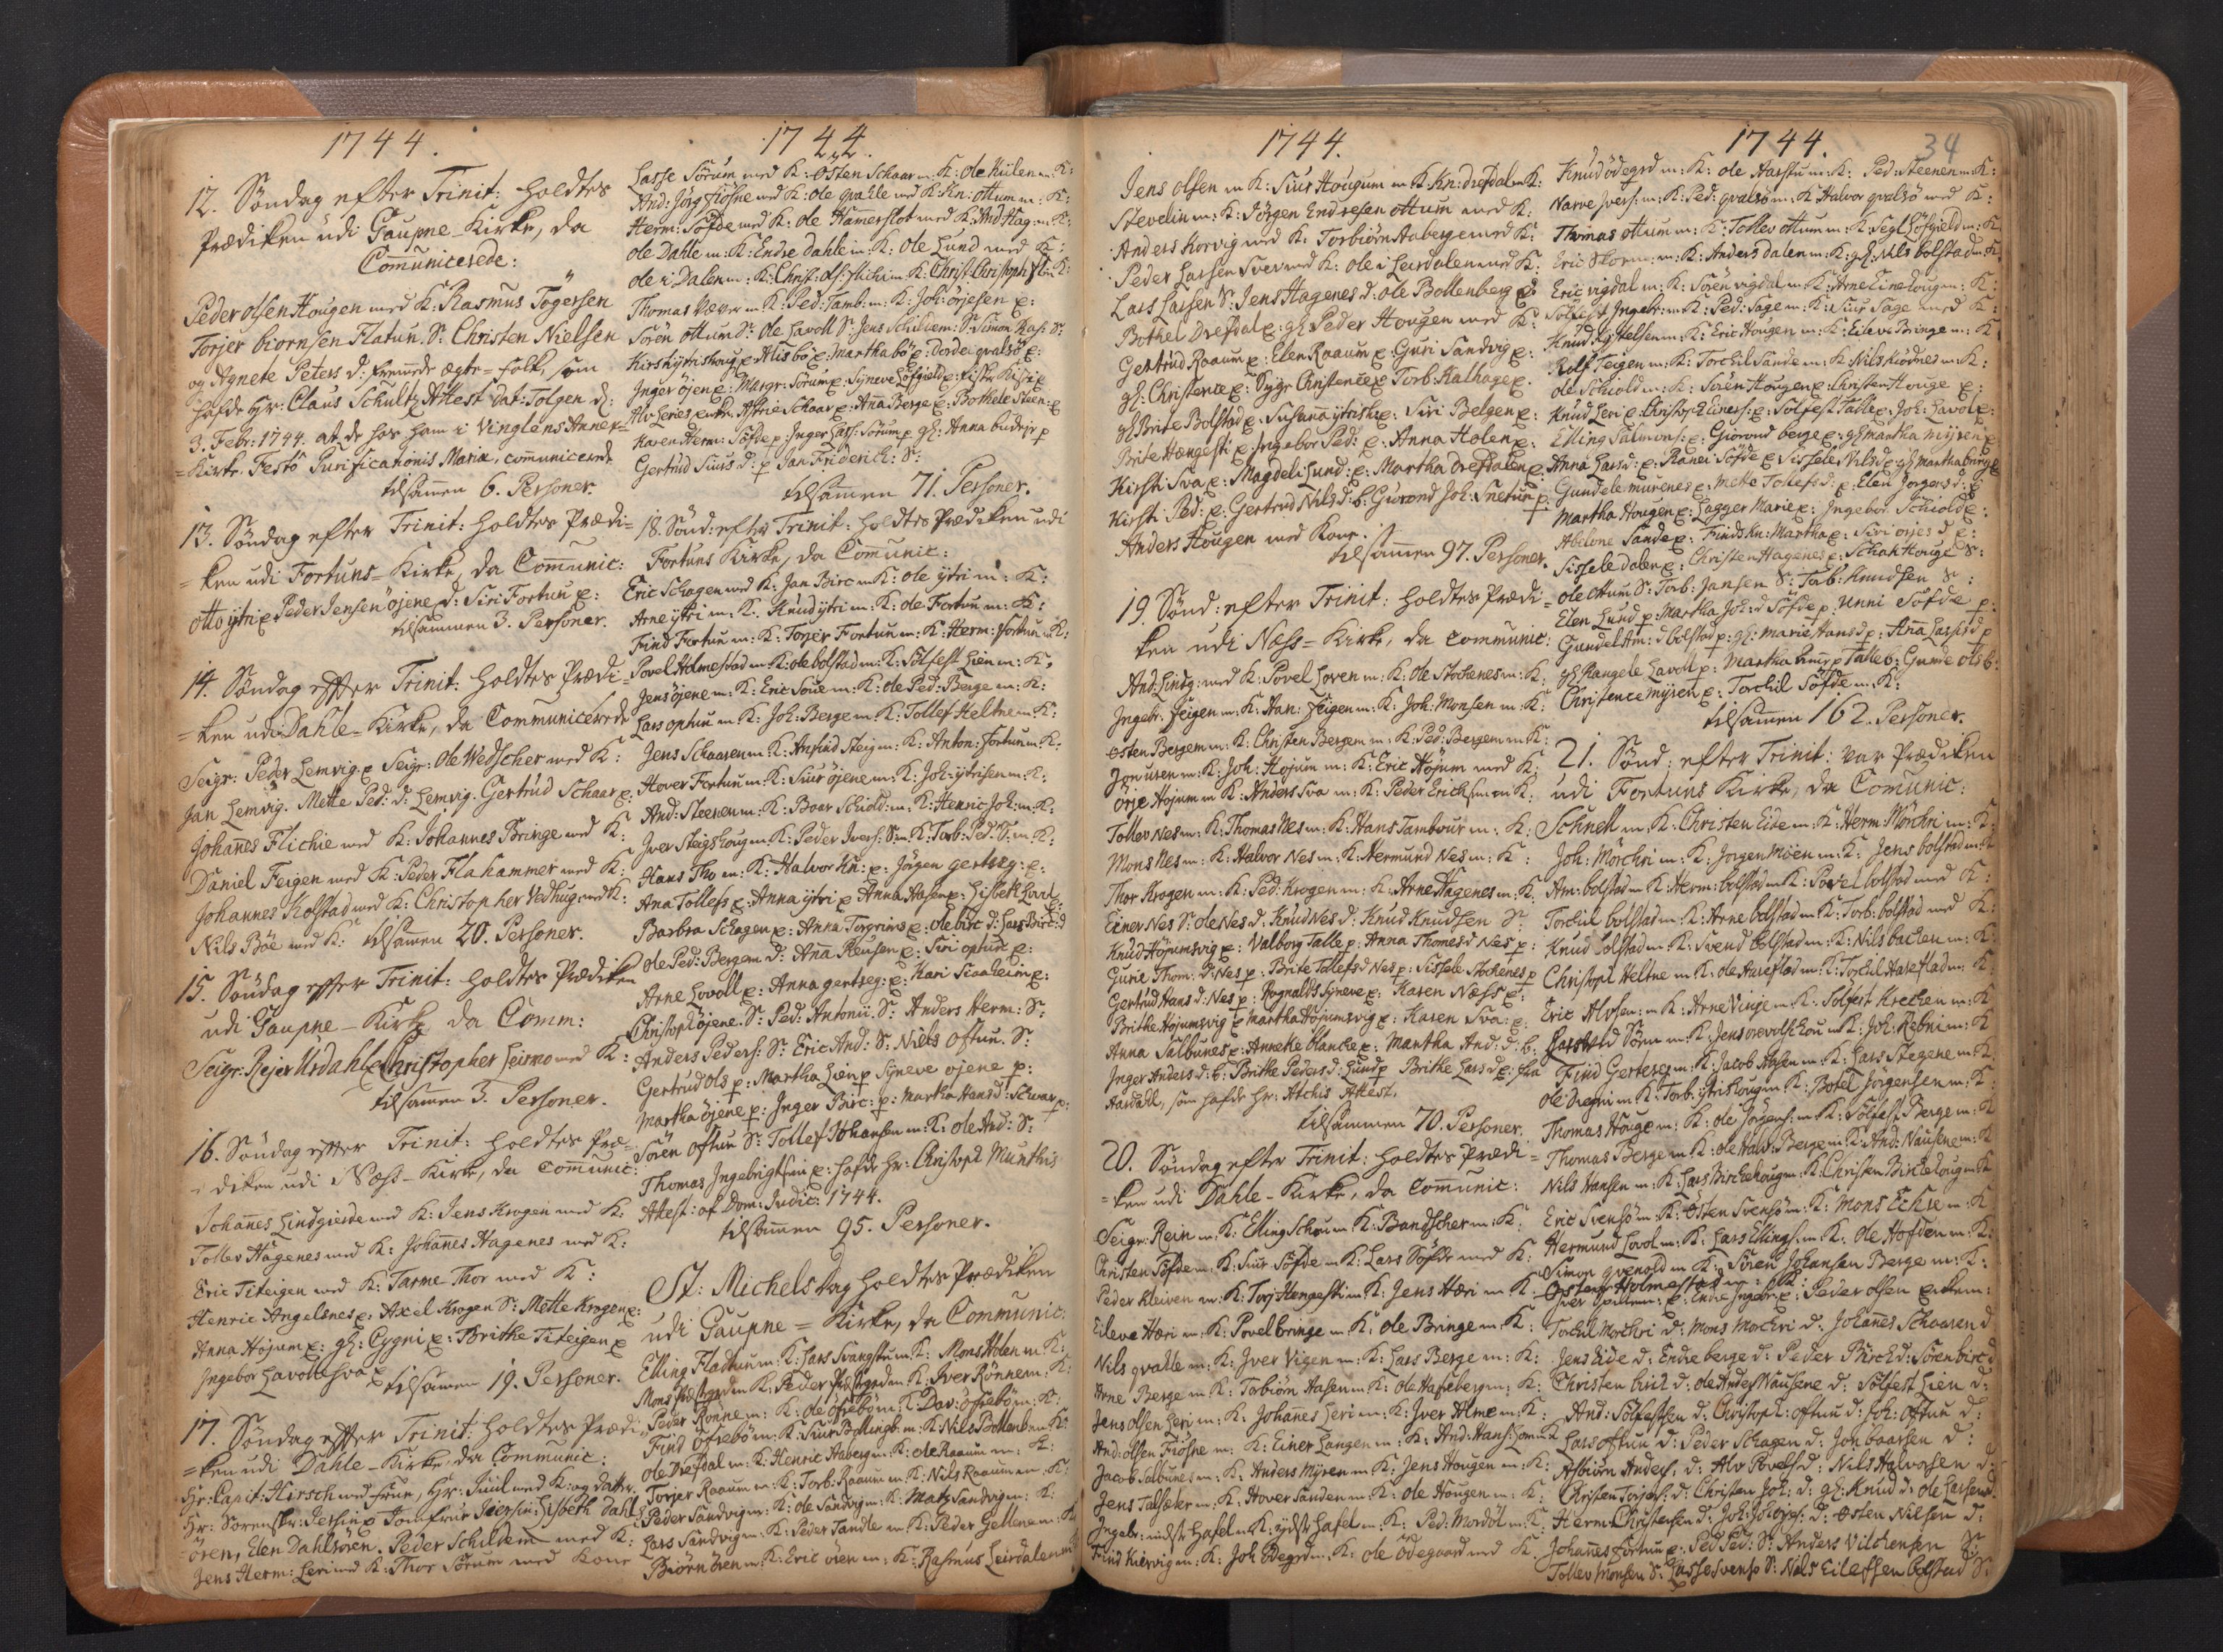 1744.
12. Søndag efter Trinit: holdtes
Prædiken udi Gaupne-Kirke, da
Com̄unicerede:
Peder olsen Hougen med K: Rasmus Togersen
Torjer biornsen Flatun. S: Christen Nielsen
og Agnete Peters d: fremede ægte-folk, som
hafde hr: Claus Schultz Attest dat: Tolgen d:
3. Febr: 1744. at de hos ham i Vinglens Annex-
=Kirke Festô Purificationis Mariæ, communicerede
tilsam̄en 6. Personer.
13. Søndag efter Trinit: holdtes Prædi=
=ken udi Fortuns-Kirke, da Com̄unic:
otto ytri e Peder Jensen øjene d: Siri Fortun e:
tilsammen 3. Personer.
14. Søndag effter Trinit: holdtes Prædi=
=ken udi Dahle-Kirke, da Communicerede
Seigr: Peder Lemvig e Seigr: Ole Wedscher med K:
Jan Lemvig. Mette Ped: d: Lemvig. Gertrud Schaar e:
Johan̄es Flichie med K: Johannes Bringe med K:
Daniel Feigen med K: Peder Flahammer med K:
Johannes Kolstad med K: Christopher Vedhug med K:
Nils Bøe med K: tilsam̄en 20. Personer.
15. Søndag effter Trinit: holdtes Prædiken
udi Gaupne-Kirke da Comm:
Seigr: Rejer Urdahl e Christopher Heirmo med K:
tilsam̄en 3. Personer.
16. Søndag effter Trinit: holdtes Præ=
=diken udi Næss-Kirke, da Com̄unic:
Johan̄es Lindgierde med K: Jens Krogen med K:
Tollev Hagenes med K: Johan̄es Hagenes med K:
Eric Titeigen med K: Tarme Thor med K:
Henric Angelsnes e: Axel Krogen S: Mette Krogen e:
Anna Højum e: gl: Cygni e: Brithe Titeigen e
Ingebor Lavoll e tilsam̄en 19. Personer.
17. Søndag effter Trinit: holdtes Prædi=
=ken udi Dahle-Kirke da Communic:
Hr: Capit: Hirsch med Frue, Hr: Juul med K: og datter
Hr: Sorenskr: e Jomfrue Lisbeth Dahl
ören, Elen Dahlsören. Peder Schildem med K:
Jens Herm: Leri med K: Thor Sorum med Kone
1744.
Lasse Sörum med K: Østen Schaar m: K: Ole Kiilen m: K:
And: Jörg Fiösne med K: Ole qvalle med K: Kn: ottum m: K:
Herm: Söfde med K: Ole Ham̄erslob med K: And Hag: m: K:
Ole Dahle m: K: Endre Dahle m: K: Ole Lund med K:
Ole i Dalen m: K: Christ: Ols: flichi m: K: Christ: Christoph m: K:
Thomas Væver m: K: Ped: Tamb: m: K: Joh: örjesen e:
Sören ottum S: Ole Lavoll S: Jens Schildem: S: Simon Ras: S:
Kirsti ytrishoug e Alis bö e: Martha bö e: Dorde qvalsö e:
Inger öjen e: Margr: Sörum e: Syneve Löfgield e:
Alv Leries enke: Astrie Schaar e: An̄a Berge e: Bothele Steen: e
Karen Herm: Söfde p: Inger Lass: Sörum p gl: Anna budeje p
Gertrud Siurs d: p Jan Friderich: S:
tilsam̄en 71. Personer.
18. Sönd: efter Trinit: holdtes Prædiken udi
Fortuns Kirke, da Com̄unic:
Eric Schagen med K: Jan Birc m K: Ole ytri m: K:
Arne ytri m: K: Knud ytri m: K: ole Fortun m: K:
Find Fortun m: K: Torjer Fortun m: K: Herm: Fortun m: K:
Povel Holmestad m K: ole bolstad m: K: Sölfest Lien m: K:
Jens öjene m: K: Eric Soue m: K: ole Ped: Berge m: K:
Lars optun m K: Joh: Berge m: K: Tollef Heltne m: K:
Jens Schaaren m: K: Anfind Steig m: K: Anton: Fortun m: K:
Hover Fortun m: K: Siur öjene m: K: Joh: ytrisen m: K:
And: Steenen m: K: Boar Schiold: m: K: Henric Joh: m: K:
Jver Steigshoug m K: Peder Jvers: S: m K: Torb: Ped: S: m: K:
Hans Tho m: K: Halvor Kn: e: Jörgen gertseg: e:
Ana Tollefs e: Anna ytri e Anna Aasen e: Lisbeth Lovol e:
Barbra Schagen e: Anna Torgrims e: ole birc d: Lars Birc: d
ole Ped: Bergem d: An̄a Reusen e: Siri optun e:
Arne Lovoll e: Anna gertseg: e: Kari Siaaheim e:
Christoph öjene: S: Ped: Antonii S: Anders Herm: S:
Anders Peders: S: Eric And: S: Niels Oftun. S:
Gertrud Ols p: Martha Lien p Syneve öjene p:
Martha öjene p: Inger Birc: p: Martha Hans d: Schaar p:
Sören Oftun S: Tollef Johansen m: K: ole And: S:
Thomas Ingebrigtsen e: hafde Hr: Christoph Munthis
Attest: af Dom: Judic: 1744.
tilsam̄en 95. Personer.
St: Michelsdag holdtes Prædiken
udi Gaupne=Kirke, da Communic:
Elling Flattun m: K: Lars Svangstu m: K: Mons Holen m: K:
Mons Præstgrd m K: Peder Præstgrd m: K: Jver Rönne m: K:
Peder Rönne m: K: ole öfrebö m: K: Dav: öfrebö m: K:
Find Öfrebö m: K: Siur Bollingb: m: K: Nils Bollenb: m: K:
Ole Drefdal m: K: Henric Aaberg m: K: ole Raaum m: K:
Torjer Raaum m: K: Torb: Raaum m K: Nils Raaum m: K:
Peder Sandvig m: K: ole Sandvig m: K: Matz Sandvig m: K:
Lars Sandvig m: K: Peder Tandle m K: Peder Gellene m: K:
Biørn ören m: K: Eric ören m: K: Rasmus Leirdalen m:
1744.
Jens Olsen m K: Siur Hougum m K Kn: Drefdal m K:
Stevelin m: K: Jörgen Endresen ottum med K:
Anders Korvig med K: Torbiörn Aaberge med K:
Peder Larsen Sver med K: ole i Leirdalen med K:
Lars Larsen S: Jens Hagenes d: ole Bollenberg d:
Bothel Drefdal e: gl Peder Hougen med K:
Gertrud Raaum e: Elen Raaum e: Guri Sandvig e:
gl: Christence e: Sygr: Christence e Torb: Kalhage e.
gl Brite Bolstad e: Susan̄a ytrisk e: Siri Belgen e:
Brite Hængesti e: Ingebor Ped: e: Anna Holen e:
Kirsti Sva e: Magdeli Lund: e: Martha Drefdalen e
Kirsti Ped: e: Gertrud Nils d: b: Gurond Joh: Snetun p:
Anders Hougen med Kone:
tilsam̄en 97. Personer.
19. Sønd: efter Trinit: holdtes Prædi=
ken udi Næss-Kirke, da communic:
And: Lindg: med K: Povel Loven m: K: Ole Stockenes m: K:
Ingebr: Feigen m: K: Han: Feigen m: K: Joh: Monsen m: K:
Østen Bergem m: K: Christen Bergem m: K: Ped: Bergem m K:
Jon uren m: K: Joh: Hojum m: K: Eric Höjum med K:
Örje Hojum m K: Anders Sva m: K: Peder Ericksen m K:
Tollev Nes m: K: Thomas Nes m: K: Hans Tambour m: K:
Mons Nes m: K: Halvor Nes m: K: Hermund Nes m: K:
Thor Krogen m: K: Ped: Krogen m: K: Arne Hagenes m: K
Einer Nes S: Ole Nes d: Knud Nes d: Knud Knudsen S:
Knud Höjumsvig e: Valborg Talle p: Anna Thomes d Nes p:
Gurie Thom: d Nes p: Brite Tollefs d Nes p: Sissele Stockenes p
Gertrud Hans d: Nes p: Rognalds Syneve e: Karen Næss e:
Brithe Höjumsvig e Martha Höjumsvig e: Karen Sva: e:
Anna Salbunes e: Anneke blancke e: Martha And: d: b:
Inger Anders d: b: Brithe Peders d: Lund p Brithe Lars d e: fra
Aardahl, som hafde Hr: Atchis Attest.
tilsammen 70. Personer.
20. Søndag efter Trinit: holdtes Prædi=
=ken udi Dahle-Kirke, da Com̄unic:
Seigr: Rein m: K: Elling Schou m: K: Bandscher m: K:
Christen Söfde m: K: Siur Söfde m K: Lars Söfde med K:
Peder Kleiven m: K: Torj Hengesti m K: Jens Hæri m K:
Eileve Hæri m: K: Povel Bringe m K: Ole Bringe m: K:
Nils qvalle m: K: Jver Vigen m: K: Lars Berge m: K:
Arne Berge m K: Torbiörn Aasen m K: Ole Hafseberg m: K:
Jens olsen Leri m: K: Johan̄es Leri m: K: Jver Alme m: K:
And: olsen Fiösne m: K: Einer Langen m: K: And: Hans: m K
Jacob Salbunes m: K: Anders Myren m: K: Jens Hougen m: K:
Jens Talsæter m: K: Hover Sanden m: K: Ole Hougen m: K:
Ingebr: inds Hafsel m: K: ydst Hafsl m: K: Ped: Mordöl m: K:
Find Kiervig m: K: Joh Ødegrd m: K: ole Ödegaard med K.
1744.
34
Knud ödegrd m: K: Ole Aastu m: K: Ped: Steenen m K:
Narve Jvers: m: K: Ped: qvalsö m: K: Halvor qvalsö med K:
Thomas Ottum m: K: Tollev ottum m: K: Segl Löfgield m: K:
Eric Skorn: m: K: Anders Dalen m: K: gl: Nils bolstad m: K:
Eric vigdal m: K: Sören vigdal m: K: Arne Linehoug m: K:
Sölfest Ingebr: m: K: Ped: Sage m: K: Siur Sage med K:
Knud m: K: Eric Hougen m: K: Eileve Bringe m: K
Rolf Teigen m: K: Torchil Sande m: K: Nils Kiödnes m: K:
Ole Schiold m: K: Sören Hougen e: Christen Houge e:
Knud Leri e: Christoph Einers: e: Sölfest Talle e: Joh: Lavol e:
Elling Salmons: e: Giörond berge e: gl Martha Myren e
Anna Lars d: e: Ranei Söfde e Sissele Nils d e: gl Martha berge
Gundele murenes e: Mette Tollefs d: e: Elen Jörgers d: e
Martha Hougen e: Lagger Marie e: Ingebor Schiold e:
Abelone Sande e: Finds Kn: Martha e: Siri Orjes d e:
Sissele Dalen e: Christen Hagenes e: Schak Houge S:
Ole Ottum S: Torb: Jansen S: Torb: Knudsen S:
Elen Lund p: Martha Joh: d Söfde p: Unni Söfde p:
Gundel Am: d bolstad p: gl: Marie Hans d p: An̄a Lasses d p
gl Rangele Lavoll p: Martha p Talle b: Gunde ols b:
Christence Mÿren p: Torchil Söfde m: K:
tilsam̄en 162. Personer.
21. Sønd: efter Trinit: var Prædiken
udi Fortuns Kirke, da Com̄unic:
Schnell m: K: Christen Eide m: K: Herm: Mörchri m: K:
Joh: Mörchri m: K: Jorgen Moen m: K: Jens bolstad m: K
Am: bolstad m K: Herm: bolstad m K: Povel bolstad med K:
Torchil bolstad m: K: Arne bolstad m: K: Torb: bolstad med K:
Knud bolstad m: K: Svend bolstad m: K: Nils bachen m: K:
Christoph Heltne m K: Ole Haresstad m: K: Torchil Harestad m: K:
Eric Alvsen: m K: Arne Vinje m: K: Solfest Krechen m: K
Lars Sören m: K: Jens m: K: Joh: Rebni m: K
Find Gertseg m: K: Jacob Aasen m: K: Lars Stegene m: K
Ole Dregni m K: Torb: ytrishoug m K: Botel Jörgensen m: K:
Thomas Houge m: K: ole Jörgens: m: K: Sölfest Berge m: K
Thomas Berge m: K: ole Halv: Berge m K: And: Nausene m: K
Nils Hansen m: K: Lars Birchehoug m: K: Christen Birchehoug m K
Eric Svensö m: K: Østen Svensö m: K: Mons Eckre m: K
Hermund Lovol m: K: Lars Ellings: m: K: Ole Hofden m: K:
Simon gvenold m K: Sören Johansen Berge m: K:
Østen Holmestad m: K:
Jver m: e: Endre Ingebr: e: Peder olsen
Torchil Morchri d: Mons Mochri d: Johan̄es Schaaren d
Jens Eide d: Endre berge d: Peder Birch d: Sören birc d
Christen birch d: ole Anders Nausene d: Sölfest Lien d:
And: Sölfestsen d: Christoph: oftun d: Joh: Oftun d:
Lars oftun d: Peder Schagen d: Jon boarsen d:
Asbiörn Anders: d: Alv Povels d: Nils Halvorsen d:
Christen Torjers: d: Christen Joh: d: gl: Knud d: Ole Larsen d.
Herm: Christensen d: Joh: Joh örjes: d: Østen Nilsen d:
Johan̄es Fortun e: Ped Ped: S: Anders Vilchensen S:
Tollev Monsen S: Lasse Svenso S: Nils Eilefsen bolstad S: